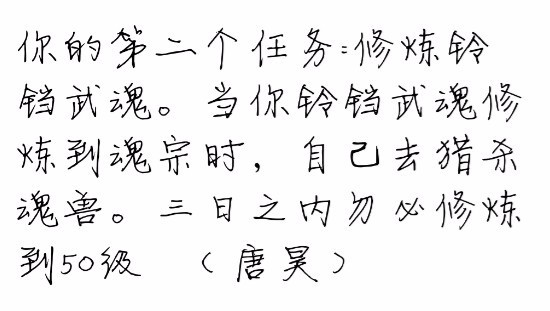 你的第二个任务:修炼铃
铛武魂。当你铃铛武魂修
炼到魂宗时，自己去猎杀
魂兽。三日之内勿必修炼
到50级 （唐昊）